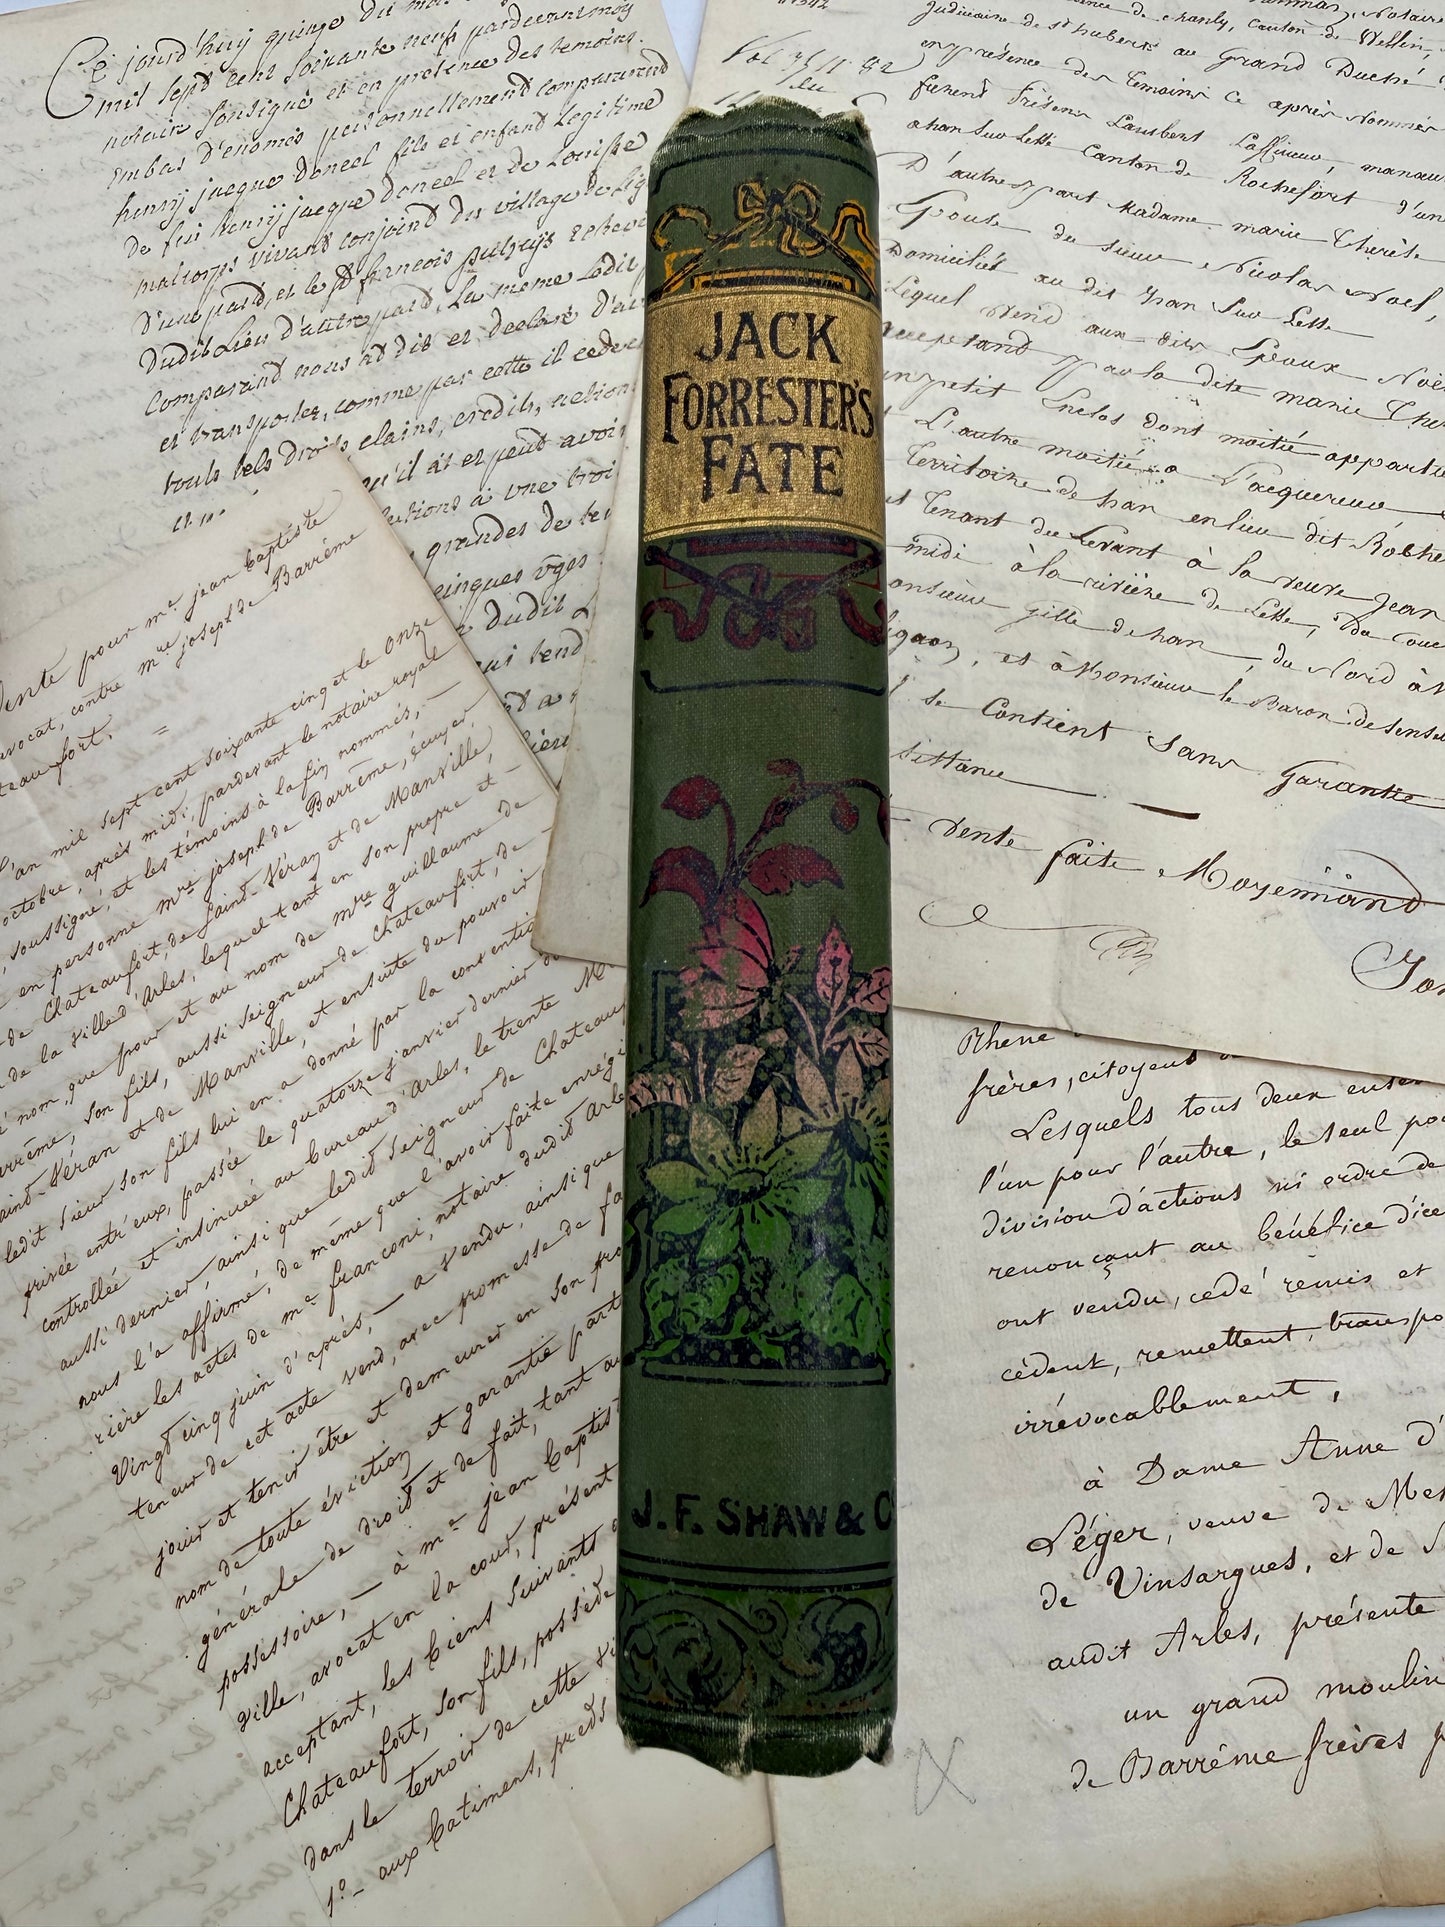 JACK
FORRESTER'S
FATE
J. F. SHAW & C
Ce jourd'huy quinze du
mil sept cent soixante neuf pardevant moy
notaire soussigné et en presence des temoins
embas d'enomés personnellement comparurent
henry jacque doneel fils et enfant legitime
de feu henry jacque doneel et de Louisse
vivant conjoint du village de
D'une part, et le francois
dudit Lieu d'autre part, La meme Ledit
Comparand nous at dit et declaré
et transporter, comme par cette il cede
touts tels droits, clains, credits, actions
qu'il at et peut avoir
à une
grandes de
cinques
dudit
vente pour me jean baptiste
avocat, contre mre joseph de Barrême
teau fort.
L'an mil sept cent soixante cinq et le onze
octobre, après midi, pardevant le notaire royal
soussigné, et les témoins à la fin nommés,
en personne mre joseph de Barrême, écuyer,
de Chateaufort, de Saint-Véran et de Manville,
de la ville d'Arles, lequel tant en son propre et
nom, que pour et au nom de mre guillaume de
arrême, son fils, aussi seigneur de Chateaufort, de
aint-Véran et de Manville, et ensuite du pouvoir
ledit sieur son fils lui en a donné par la convention
privée entr'eux, passée le quatorze janvier dernier
controllée et insinuée au bureau d'Arles, le trente
aussi dernier, ainsi que ledit seigneur de Chateau
nous l'a affirmé, de même que l'avoir faite enrégi
rière les actes de me franconi, notaire dudit Arle
Vingt cinq juin d'après, a vendu, ainsi que
teneur de cet acte vend, avec promesse de fa
jouir et tenir être et demeurer en son pro
nom de toute éviction et garantie part
générale de droit et de fait, tant au
possessoire, à me jean baptis
ville, avocat en la cour, présent
acceptant, les biens suivants
Chateaufort, son fils, possède
dans le terroir de cette vi
1o aux batimens, preds
canton de Wellin,
Judiciaire de st hubert au Grand Duché
en présence des temoins ci après nommés
furent Présens Lambert Laffineur, manœu
a han Sur Lesse Canton de Rochefort d'un
D'autre part Madame marie Thérèse
Epouse du sieur Nicolas Noel,
Domiciliés au dit han Sur Lesse
Lequel vend aux dits Epoux Noel
acceptand par la dite marie Ther
un petit Enclos dont moitié apparti
L'autre moitié a Jacquereux
Territoire de han en lieu dit Roche
et Tenant du Levant à la veuve Jean
midi à la rivière de Lesse, du Couc
onsieur gille dehan, du Nord à
et à Monsieur le Baron de
se Contient sans Garantie
vente faite Moyennand
frères, citoyens
Lesquels tous deux ense
l'un pour l'autre, le seul po
division d'actions ni ordre de
renonçant au bénéfice d'ice
ont vendu, cédé remis et
cèdent, remettent, transpo
irrévocablement,
à Dame Anne d'
Léger, veuve de
de Vinsargues, et de
audit Arles, présente
un grand moulin
de Barrême frères